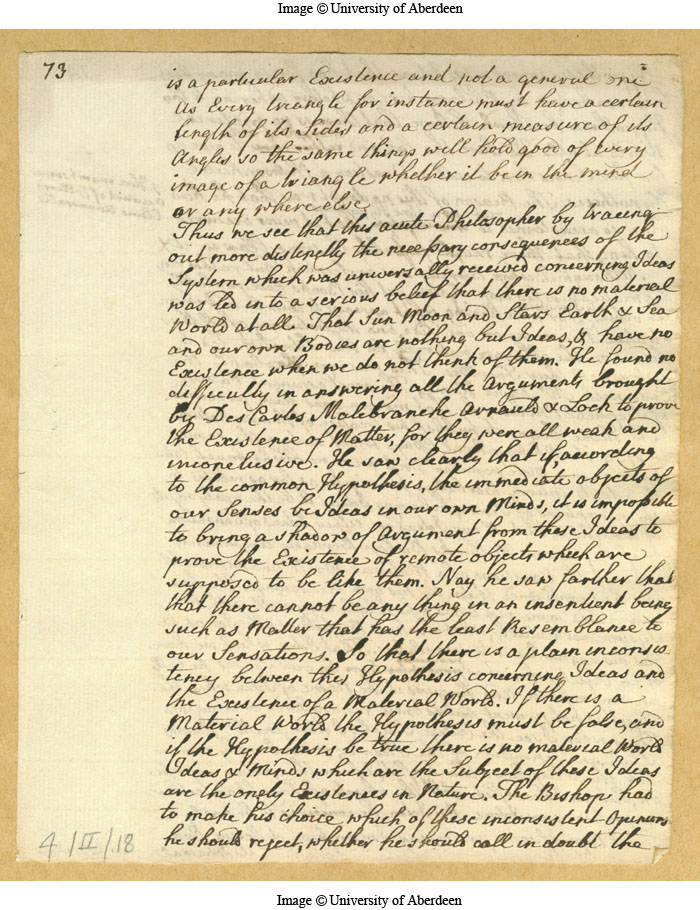 Image © University of Aberdeen
73
is a particular Existence and not a general one
As Every triangle for instance must have a certain
length of its Sides and a certain measure of its
Angles so the same things will hold good of Every
image of a triangle whether it be in the mind
or any where else
Thus we see that this acute Philosopher by tracing
out more distinctly the necessary consequences of the
System which was universally received concerning Ideas
was led into a serious belief that there is no material
World at all. That Sun Moon and Stars Earth & Sea
and our own Bodies are nothing but Ideas, & have no
Existence when we do not think of them. He found no
difficulty in answering all the Arguments brought
by Des Cartes Malebranche Arnauld & Lock to prove
the Existence of Matter, for they were all weak and
inconclusive. He saw clearly that if, according
to the common Hypothesis, the immediate objects of
our Senses be Ideas in our own Minds, it is impossible
to bring a shadow of Argument from these Ideas to
prove the Existence of remote objects which are
supposed to be like them. Nay he saw farther that
that there cannot be any thing in an insentient being
such as Matter that has the least Resemblance to
our Sensations. So that there is a plain inconsis
tency between this Hypothesis concerning Ideas and
the Existence of a Material World. If there is a
Material World the Hypothesis must be false, and
if the Hypothesis be true there is no material World
Ideas & Minds which are the Subject of these Ideas
are the onely Existences in Nature. The Bishop had
to make his choice which of these inconsistent Opinions
he should reject, whether he should call in doubt the
4/II/18
Image © University of Aberdeen